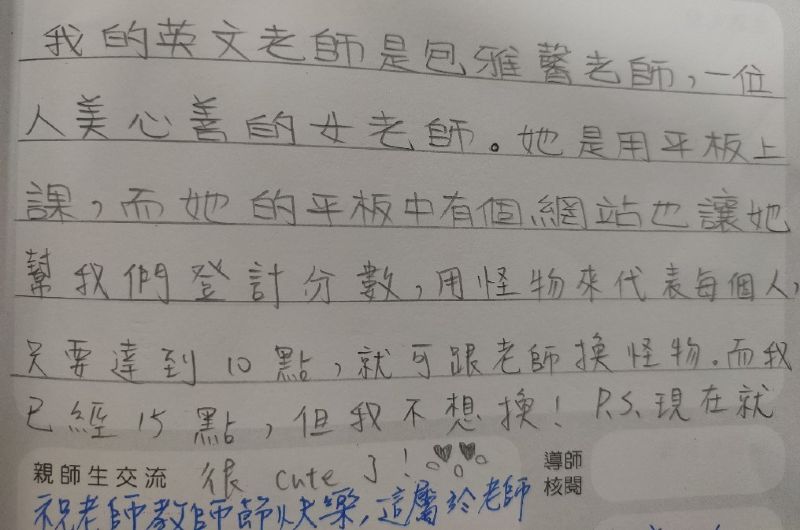 我的英文老師是包雅馨老師，一位
人美心善的女老師。她是用平板上
課，而她的平板中有個網站也讓她
幫我們登計分數，用怪物來代表每個人，
只要達到10點，就可跟老師換怪物。而我
已經15點，但我不想換！P.S.現在就
很cute了！
親師生交流
導師
核閱
祝老師教師節快樂，這屬於老師